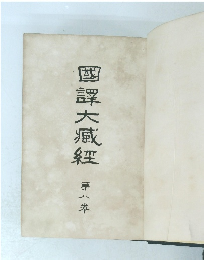 國譯大藏經
第八卷